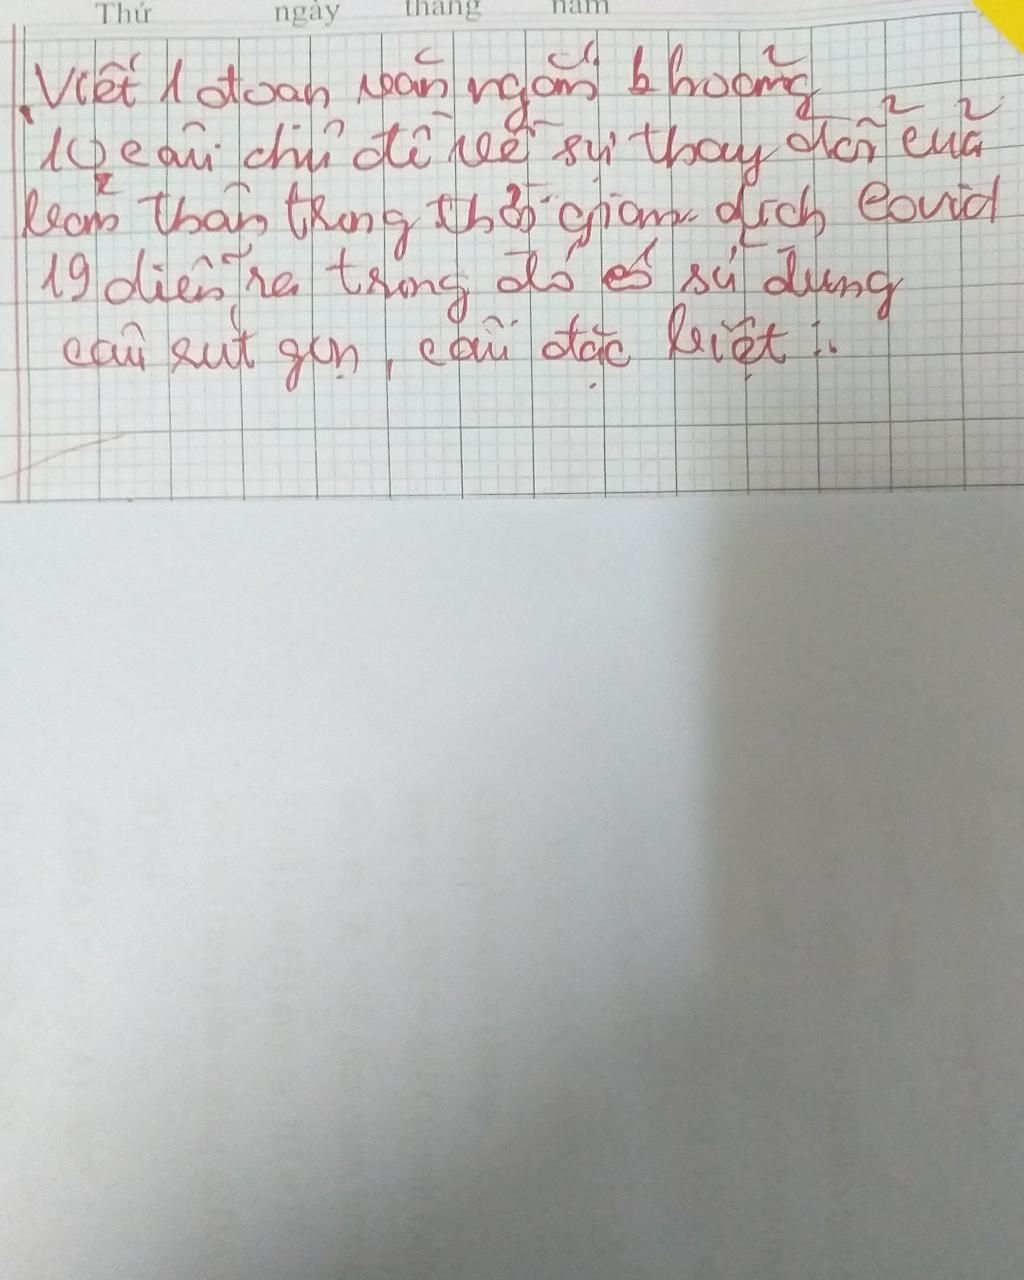 Thứ ngày tháng năm
Viết 1 đoạn văn ngắn khoảng
10 câu chủ đề về sự thay đổi của
bản thân trong thời gian dịch covid
19 diễn ra trong đó có sử dụng
câu rút gọn, câu đặc biệt :.